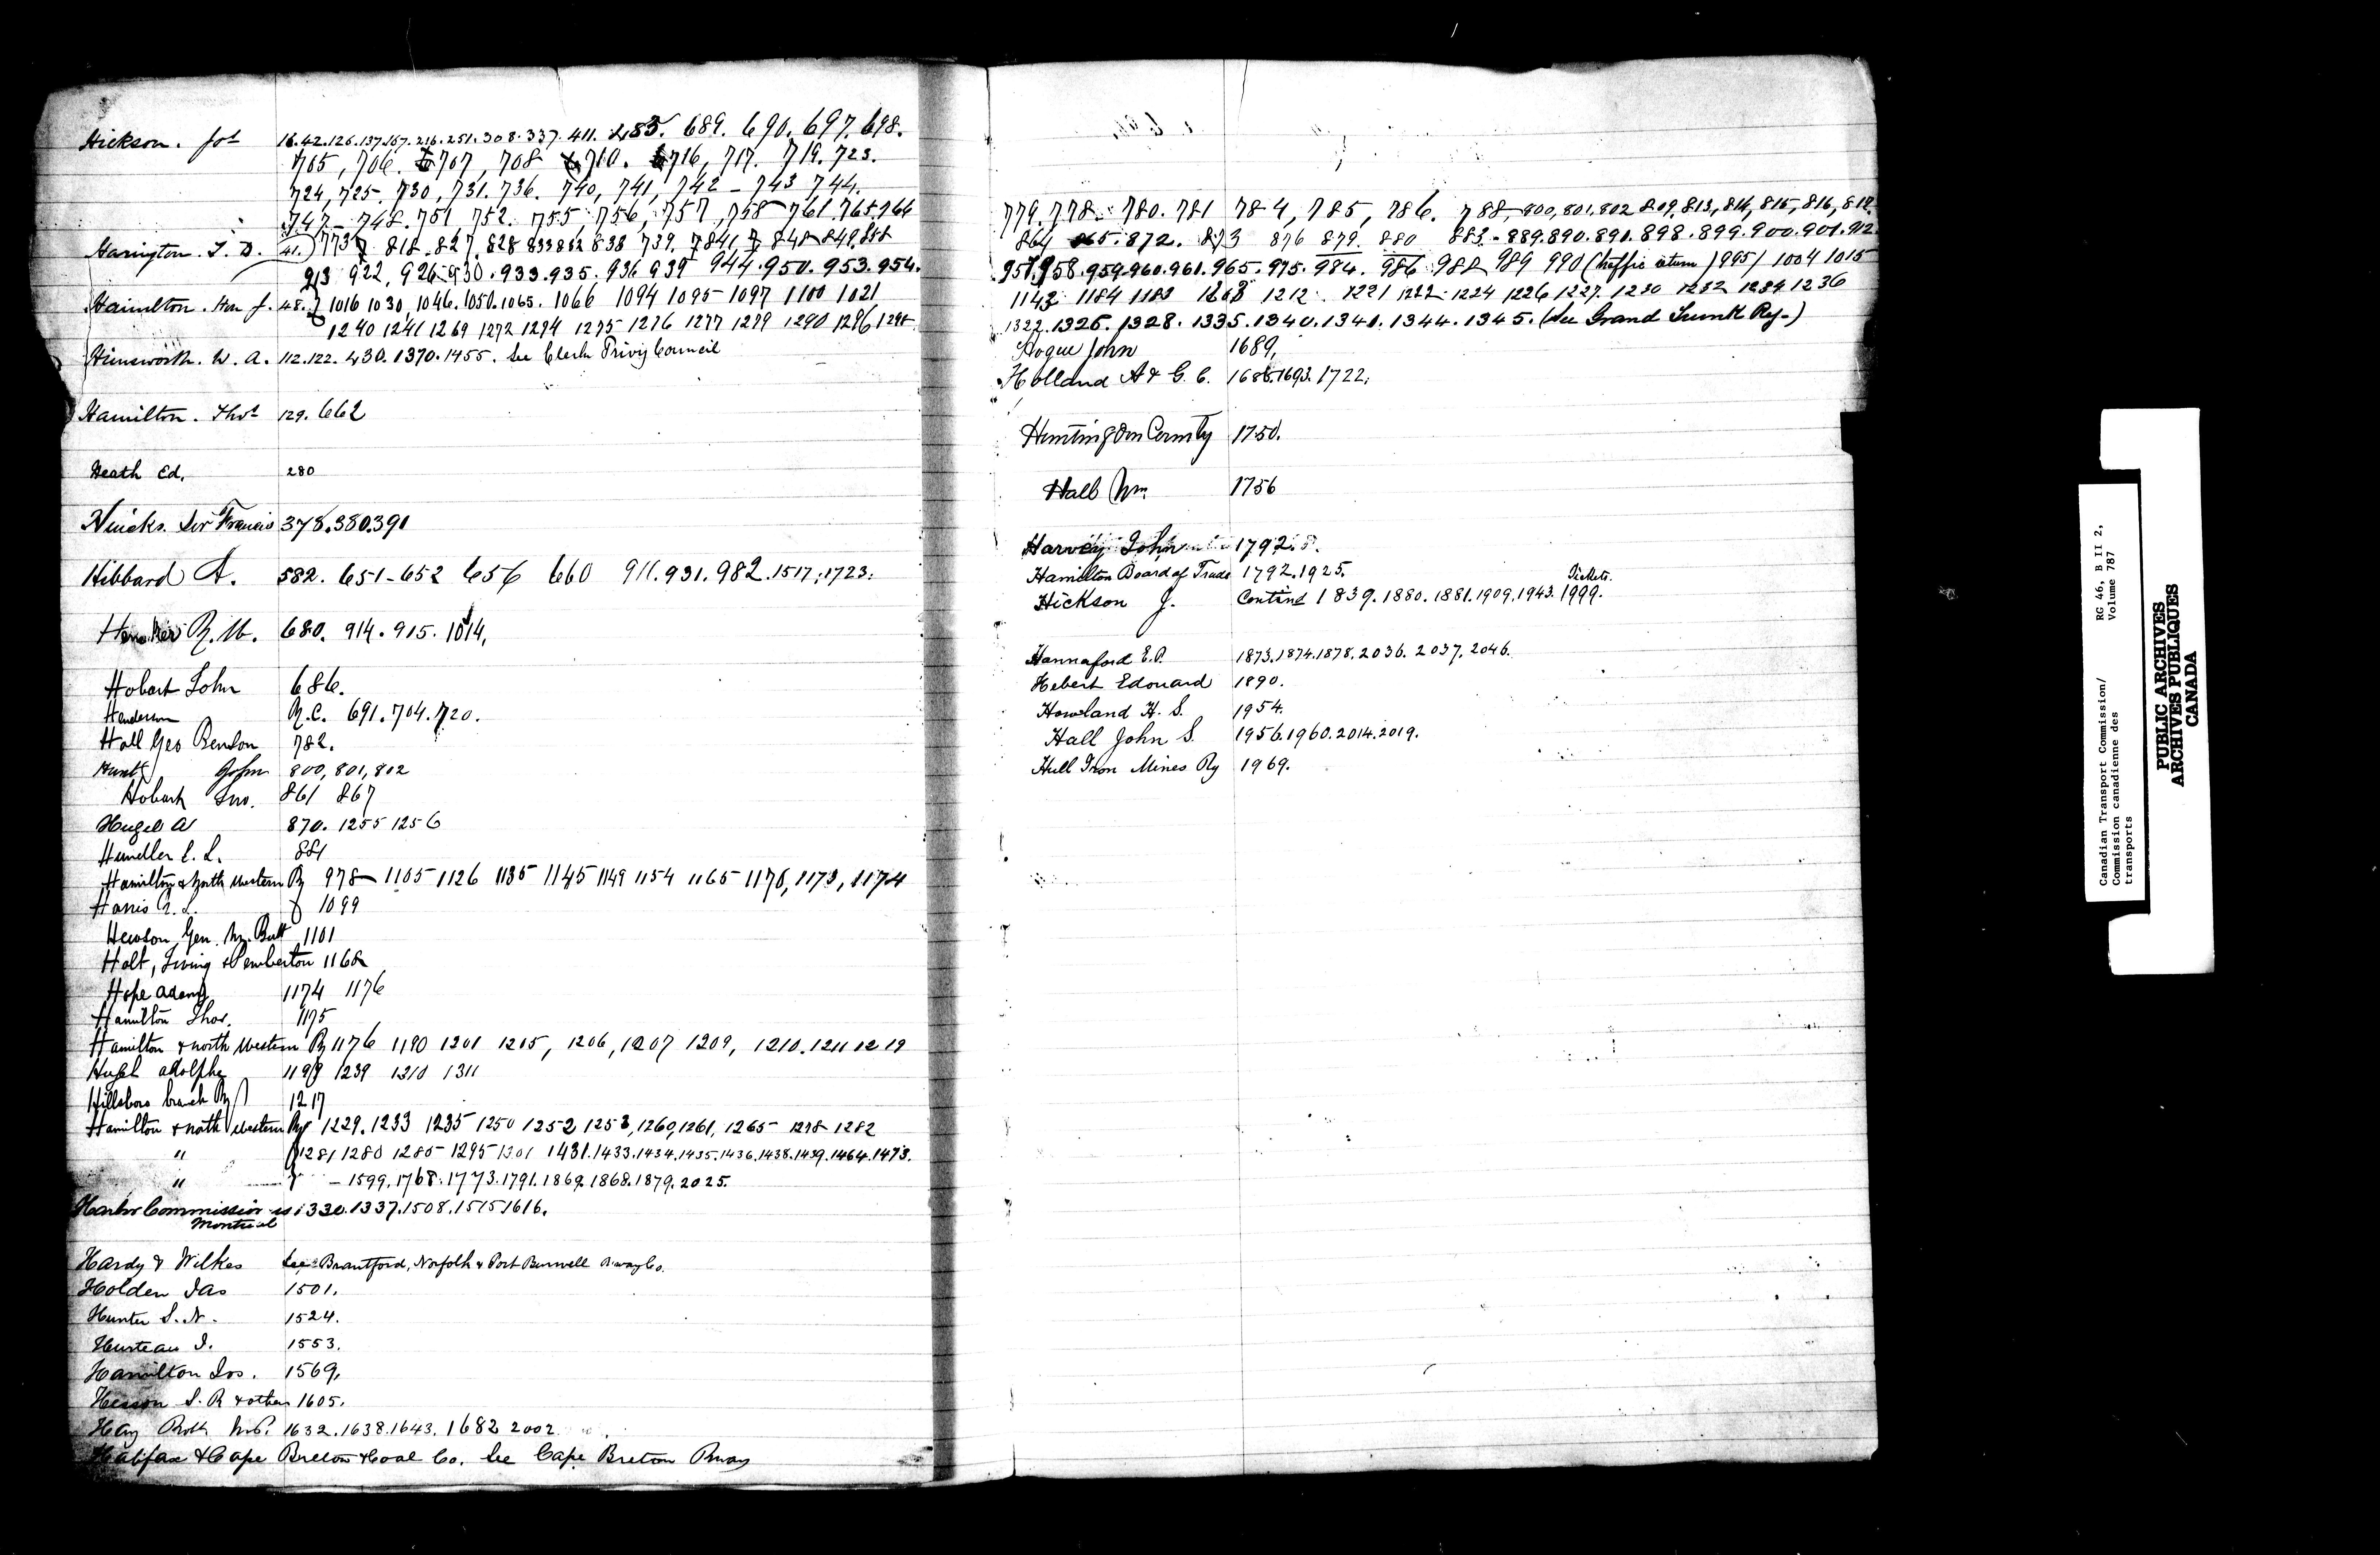 Hickson. Jos 16.42.126.137.167.216.251.308.337.411. 483. 689. 690. 697. 698.
705, 706. 707, 708 710. 716, 717. 719. 723.
724, 725- 730, 731. 736. 740, 741, 742 - 743 744.
747- 748. 751 752. 755 756, 757, 758 761.765.766
Harington. T. D. 41. 773 818.827. 828 833 838 739. 7841 848 849.858
913 922, 926.930.933.935.936 939 944.950.953.954.
Hamilton. Hon J. 48. 1016 1030, 1046.1050.1065. 1066 1094 1095 1097 1100 1021
1240 1241 1269 1272 1274 1275 1276 1277 1279 1290 1296
Himsworth. W. A. 112.122. 430.1370.1455. See Clerk Privy Council
Hamilton. Thos 129. 662
Heath Ed. 280
Hincks. Sir Francis 378.380.391
Hibbard A. 582. 651-652 656 660 911.931.982.1517;1723.
R. W. 680. 914. 915. 1014.
Hobart John 686.
Henderson R.C. 691.704.720.
Hall Geo Benson 782.
Hunt John 800,801,802
Hobart Jno. 861 867
Hugel A 870. 1255 1256
Hundler C. L. 881
Hamilton & North Western Ry 978 1105 1126 1135 1145 1149 1154 1165 1170, 1173, 1174
Harris R. L. 1099
Hewson, Gen. M. Butt 1101
Holt, Irving & Pemberton 1168
Hope Adam 1174 1176
Hamilton Thos. 1175
Hamilton & north Western Ry 1176 1190 1201 1205, 1206, 1207 1209, 1210. 1211 1219
Hugel Adolphe 1198 1239 1310 1311
Hillsboro branch Ry 1217
Hamilton & north Western Ry 1229. 1233 1235 1250 1252 1253, 1260, 1261, 1265 1278 1282
" 1281 1280 1285 1295 1301 1431.1433.1434.1435.1436.1438.1439.1464.1473.
" - 1599.1768.1773.1791.1869.1868.1879.2025.
Harbor Commissioners 1330.1337.1508.1515 1616.
Montreal
Hardy & Wilkes See Brantford, Norfolk & Port Burwell Rway Co.
Holden Jas 1501.
Hunter S. N. 1524.
Hurteau I. 1553.
Hamilton Jos. 1569.
Hesson S. R & others 1605.
Hay Robt M.P. 1632.1638.1643. 1682 2002
Halifax & Cape Breton & Coal Co. See Cape Breton Rway
779. 778. 780. 781 784, 785, 786. 788, 800, 801, 802 809, 813, 814, 815, 816, 818.
864 865.872. 873 876 879. 880 883-889.890.891.898.899.900.901.912
957.958.959.960.961.965.975.984. 986 988 989 990 (traffic return) 995) 1004 1015
1143 1184 1183 1203 1212. 1221 1222 1224 1226 1227. 1230 1232 1234 1236
1322.1326.1328.1335.1340.1341.1344.1345. (See Grand Trunk Ry-)
Hogue John 1689,
Holland A & G. C. 1686.1693.1722;
Huntingdon County 1750.
Hall Wm. 1756
Harvey John 1792.
Hamilton Board of Trade 1792.1925.
Tickets.
Hickson J. Contind 1839.1880.1881.1909.1943.1999.
Hannaford E.P. 1873.1874.1878.2036.2037.2046.
Hebert Edouard 1890.
Howland H. S. 1954.
Hall John S. 1956.1960.2014.2019.
Hull Iron Mines Ry 1969.
Canadian Transport Commission/ RG 46, B II 2,
Commission canadienne des Volume 787
transports
PUBLIC ARCHIVES
ARCHIVES PUBLIQUES
CANADA